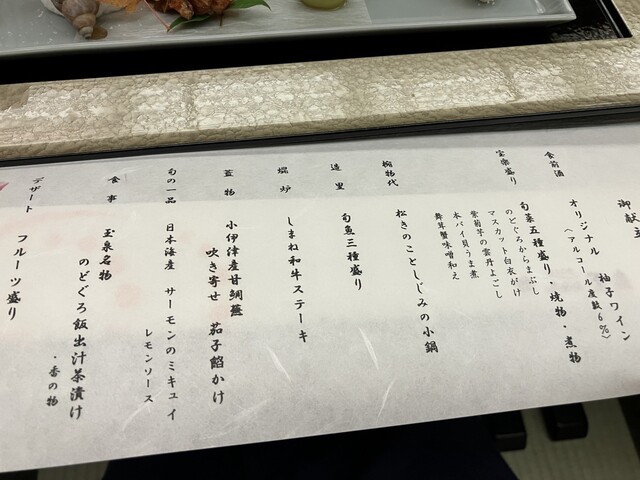 御献立
食前酒
オリジナル 柚子ワイン
〈アルコール度数6%〉
宝楽盛り
旬菜五種盛り・焼物・煮物
のどぐろからまぶし
マスカット白衣がけ
紫菊芋の雲丹よごし
本バイ貝うま煮
舞茸蟹味噌和え
椀物代
松きのことしじみの小鍋
造里
旬魚三種盛り
焜炉
しまね和牛ステーキ
蓋物
小伊津産甘鯛蕪
吹き寄せ 茄子餡かけ
旬の一品
日本海産 サーモンのミキュイ
レモンソース
食事
玉泉名物
のどぐろ飯出汁茶漬け
・香の物
デザート
フルーツ盛り